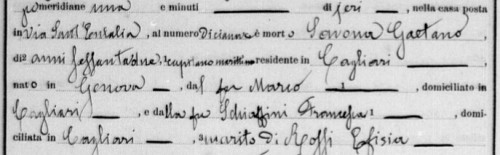 pomeridiane una e minuti di jeri, nella casa posta
in Via Sant' Eulalia, al numero Diciannove è morto Sovona Gaetano
di anni sessantadue, capitano marittimo residente in Cagliari
nato in Genova, dal fu Marco, domiciliato in
Cagliari, e dalla fu Schiaffini Francesca, domi-
ciliata in Cagliari, marito di Rossi Efisia